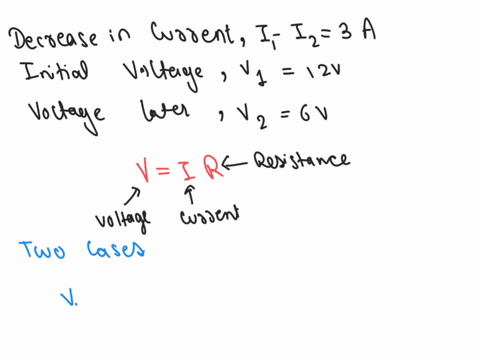 Decrease in Current, I₁- I₂ = 3 A
Initial Voltage, V₁ = 12V
Voltage later, V₂ = 6V
V = I R ← Resistance
Voltage Current
Two Cases
V.